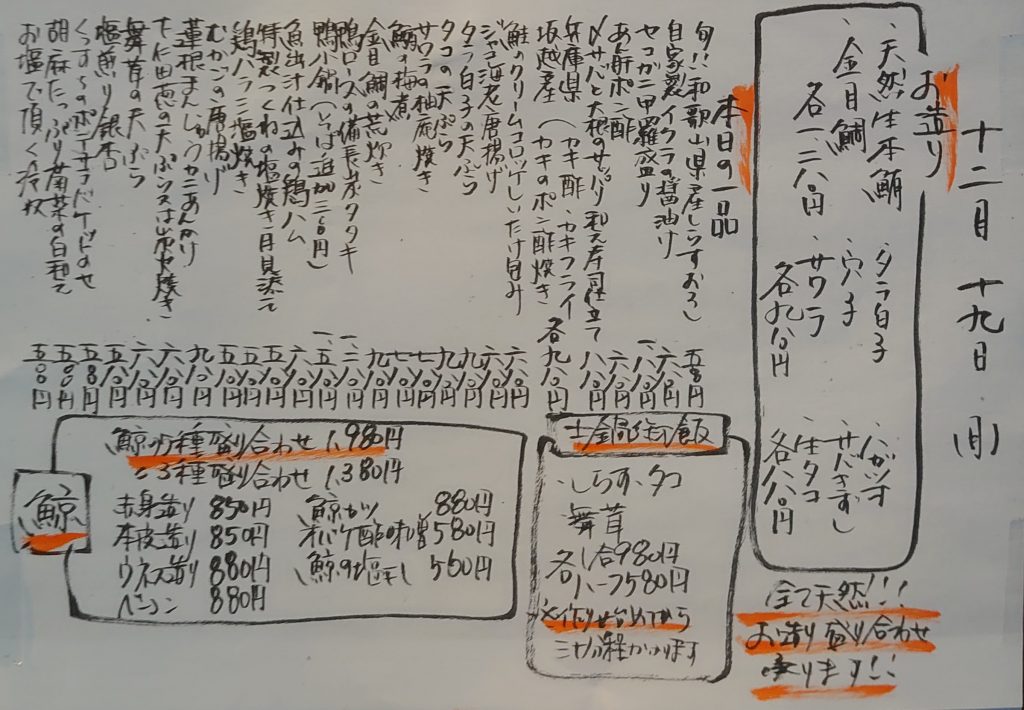 十二月十九日(月)
お造り
・天然生本鮪 ・タラ白子
・金目鯛 ・穴子
各一二八〇円 ・サワラ
各九八〇円
・ハガツオ
・サバきずし
・生タコ
各八八〇円
全て天然!!!
お造り盛り合わせ
承ります!!
本日の一品
旬!!和歌山県産しらすおろし 五八〇円
自家製イクラの醤油け
セコガニ甲羅盛り
あん肝ポン酢 六八〇円
〆サバと大根のサッパリ和え寿司仕立て 八八〇円
兵庫県 (カキ酢・カキフライ
坂越産 (カキのポン酢焼き 各九八〇円
鮭のクリームコロッケしいたけ包み 六八〇円
ジャコ海老唐揚げ 六八〇円
タラ白子の天ぷら 九八〇円
タコの天ぷら 九八〇円
サワラの柚庵焼き 七八〇円
鰯の梅煮 七八〇円
金目鯛の荒炊き 九八〇円
鴨ロースの備長炭タタキ
鴨小鍋(〆そば追加三〇〇円)
魚出汁仕込みの鶏ハム 六八〇円
特製つくねの塩焼き月見添え
鶏ハラミ塩焼き 五八〇円
むかごの唐揚げ 五八〇円
蓮根まんじゅうカニあんかけ 九八〇円
七仁田恵の天ぷら又は炭火焼き 六八〇円
舞茸の天ぷら 六八〇円
塩煎り銀杏 五八〇円
くずし〜のポテサラバケットのせ 五八〇円
胡麻たっぷり菊菜の白和え 五八〇円
お塩で頂く冷奴 五〇〇円
土鍋じか炊き御飯
・しらす、タコ
舞茸
各1合980円
ハーフ580円
※作り始めてから
三十分程かかります
鯨
鯨の5種盛り合わせ 1,980円
〃3種盛り合わせ 1,380円
赤身造り 850円 鯨カツ 880円
本皮造り 850円 オバケ酢味噌 580円
ウネス造り 880円 鯨の塩干し 560円
ベーコン 880円